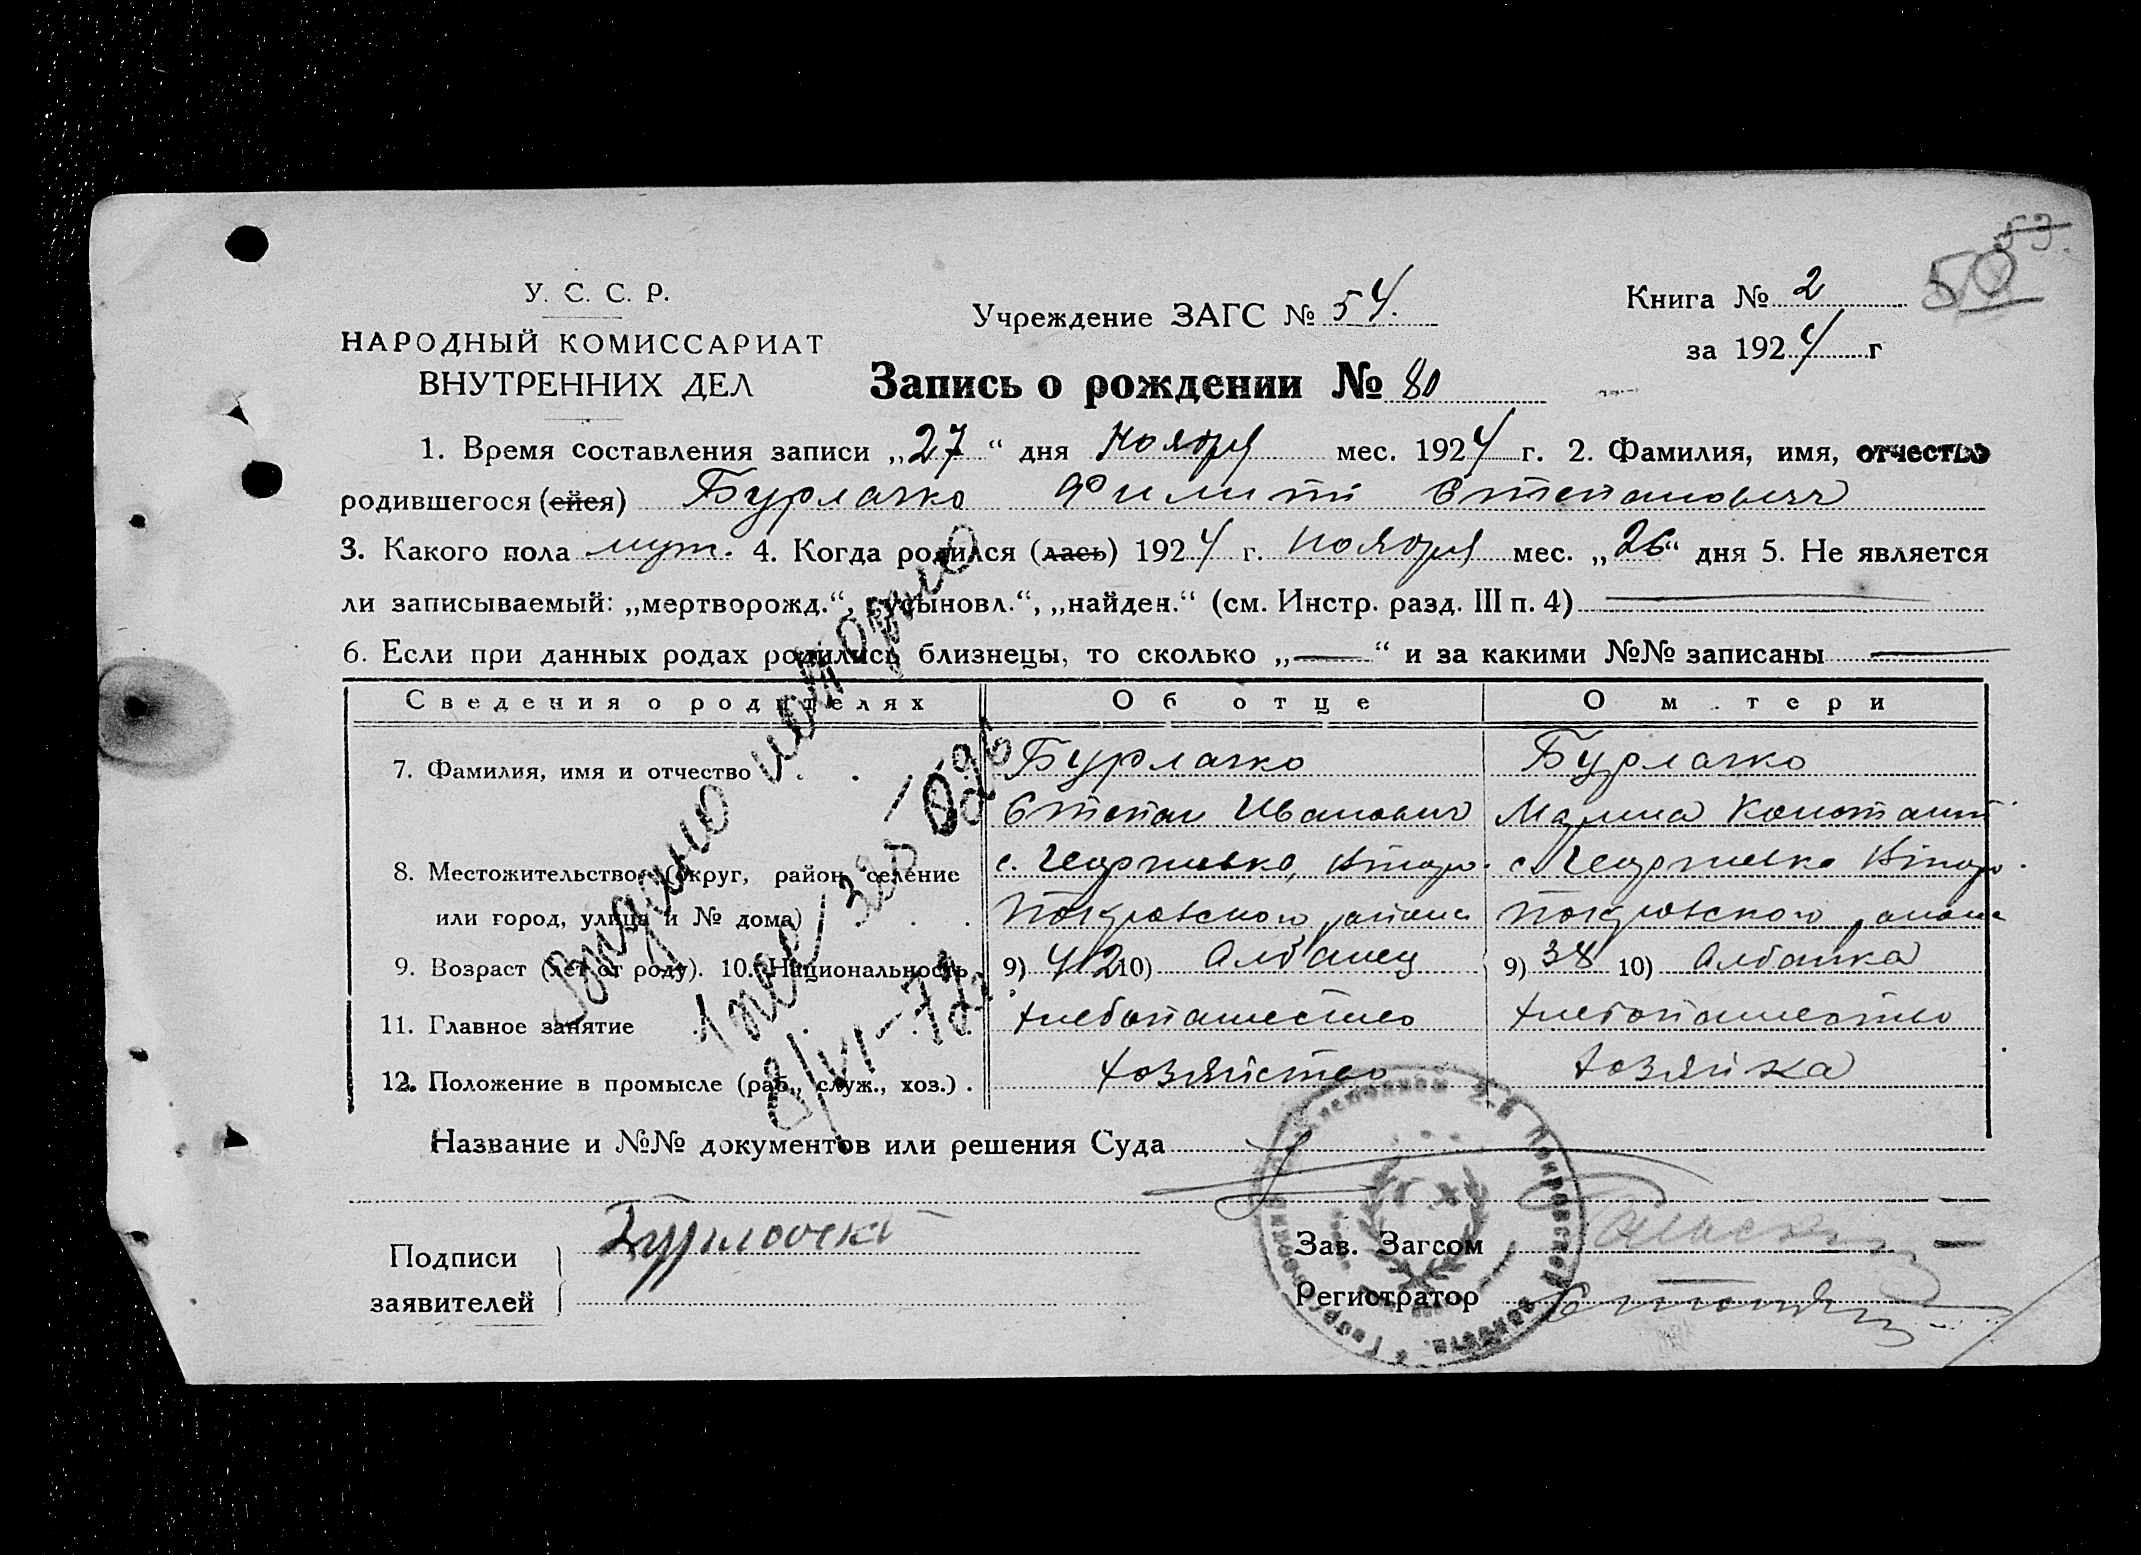 53.
50
У. С. С. Р.
НАРОДНЫЙ КОМИССАРИАТ
ВНУТРЕННИХ ДЕЛ
Учреждение ЗАГС № 54.
Книга № 2
за 1924 г
Запись о рождении № 80
1. Время составления записи „27“ дня Ноября мес. 1924 г. 2. Фамилия, имя, отчество
родившегося (ейся) Бурлачко Филипп Степанович
3. Какого пола муж. 4. Когда родился (лась) 1924 г. ноября мес. „26“ дня 5. Не является
ли записываемый: „мертворожд.“, „усыновл.“, „найден.“ (см. Инстр. разд. III п. 4)
6. Если при данных родах родились близнецы, то сколько „—“ и за какими №№ записаны —
Сведения о родителях Об отце О м тери
7. Фамилия, имя и отчество . . Бурлачко Бурлачко
Степан Иванович Марина Констант
8. Местожительство (округ, район, селение с. Георгиевка, Втор. с. Георгиевка Втор.
или город, улица и № дома) . . Покровского района Покровского района
9. Возраст (лет от роду). 10. Национальность 9) 42 10) Албанец 9) 38 10) Албанка
11. Главное занятие хлебопашество хлебопашество
12. Положение в промысле (раб., служ., хоз.) . хозяйство хозяйка
Выдано повторно
8/VI-72
Название и №№ документов или решения Суда
Подписи
заявителей
Бурлачко
Зав. Загсом
Регистратор